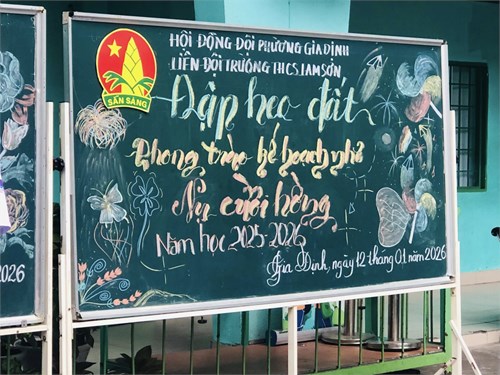 HỘI ĐỒNG ĐỘI PHƯỜNG GIA ĐỊNH
LIÊN ĐỘI TRƯỜNG THCS LAM SƠN
SẴN SÀNG
Đập heo đất
Phong trào kế hoạch nhỏ
Nụ cười hồng
Năm học 2025-2026
Gia Định, ngày 12 tháng 01 năm 2026
2026